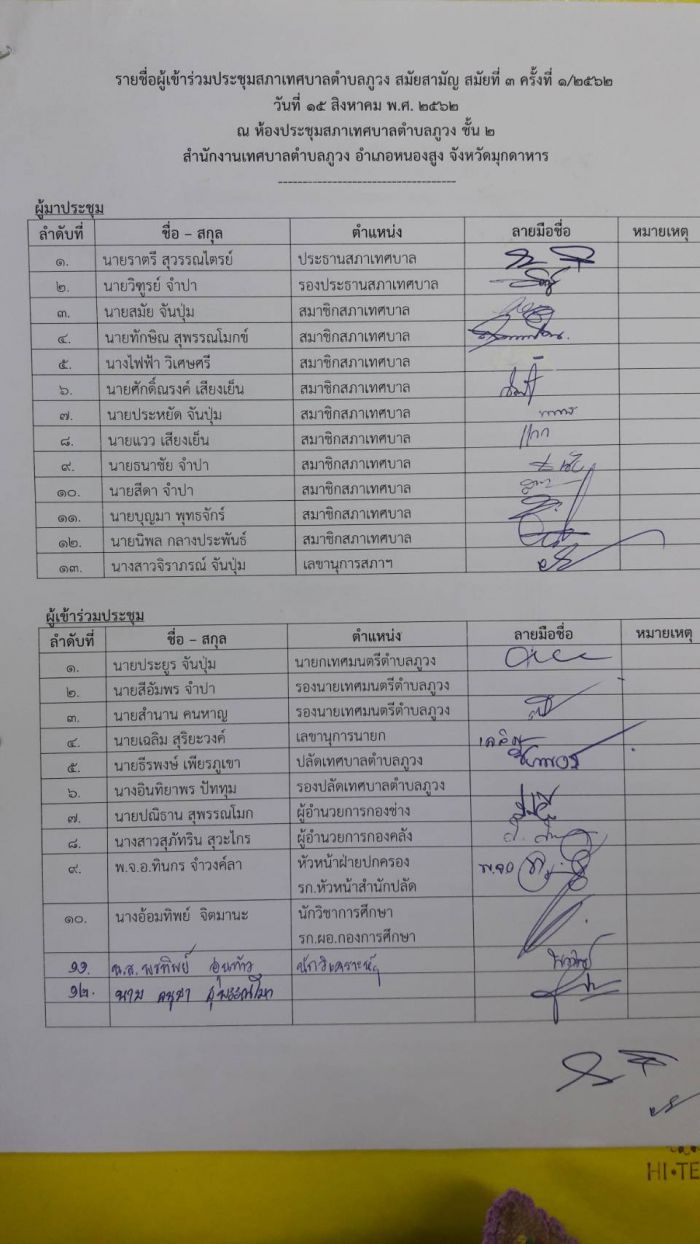 รายชื่อผู้เข้าร่วมประชุมสภาเทศบาลตำบลภูวง สมัยสามัญ สมัยที่ ๓ ครั้งที่ ๑/๒๕๖๒
วันที่ ๑๕ สิงหาคม พ.ศ. ๒๕๖๒
ณ ห้องประชุมสภาเทศบาลตำบลภูวง ชั้น ๒
สำนักงานเทศบาลตำบลภูวง อำเภอหนองสูง จังหวัดมุกดาหาร
------------------------------------
ผู้มาประชุม
ลำดับที่ ชื่อ – สกุล ตำแหน่ง ลายมือชื่อ หมายเหตุ
๑. นายราตรี สุวรรณไตรย์ ประธานสภาเทศบาล
๒. นายวิฑูรย์ จำปา รองประธานสภาเทศบาล
๓. นายสมัย จันปุ่ม สมาชิกสภาเทศบาล
๔. นายทักษิณ สุพรรณโมกข์ สมาชิกสภาเทศบาล
๕. นางไฟฟ้า วิเศษศรี สมาชิกสภาเทศบาล
๖. นายศักดิ์ณรงค์ เสียงเย็น สมาชิกสภาเทศบาล
๗. นายประหยัด จันปุ่ม สมาชิกสภาเทศบาล
๘. นายแวว เสียงเย็น สมาชิกสภาเทศบาล
๙. นายธนาชัย จำปา สมาชิกสภาเทศบาล
๑๐. นายสีดา จำปา สมาชิกสภาเทศบาล
๑๑. นายบุญมา พุทธจักร์ สมาชิกสภาเทศบาล
๑๒. นายนิพล กลางประพันธ์ สมาชิกสภาเทศบาล
๑๓. นางสาวจิราภรณ์ จันปุ่ม เลขานุการสภาฯ
ผู้เข้าร่วมประชุม
ลำดับที่ ชื่อ – สกุล ตำแหน่ง ลายมือชื่อ หมายเหตุ
๑. นายประยูร จันปุ่ม นายกเทศมนตรีตำบลภูวง
๒. นายสีอัมพร จำปา รองนายเทศมนตรีตำบลภูวง
๓. นายสำนาน คนหาญ รองนายเทศมนตรีตำบลภูวง
๔. นายเฉลิม สุริยะวงค์ เลขานุการนายก
๕. นายธีรพงษ์ เพียรภูเขา ปลัดเทศบาลตำบลภูวง
๖. นางอินทิยาพร ปัททุม รองปลัดเทศบาลตำบลภูวง
๗. นายปณิธาน สุพรรณโมก ผู้อำนวยการกองช่าง
๘. นางสาวสุภัทริน สุวะไกร ผู้อำนวยการกองคลัง
๙. พ.จ.อ.ทินกร จำวงค์ลา หัวหน้าฝ่ายปกครอง
รก.หัวหน้าสำนักปลัด
๑๐. นางอ้อมทิพย์ จิตมานะ นักวิชาการศึกษา
รก.ผอ.กองการศึกษา
๑๑. น.ส. พรทิพย์ นักวิเคราะห์ฯ
๑๒. นาย
HI•TE